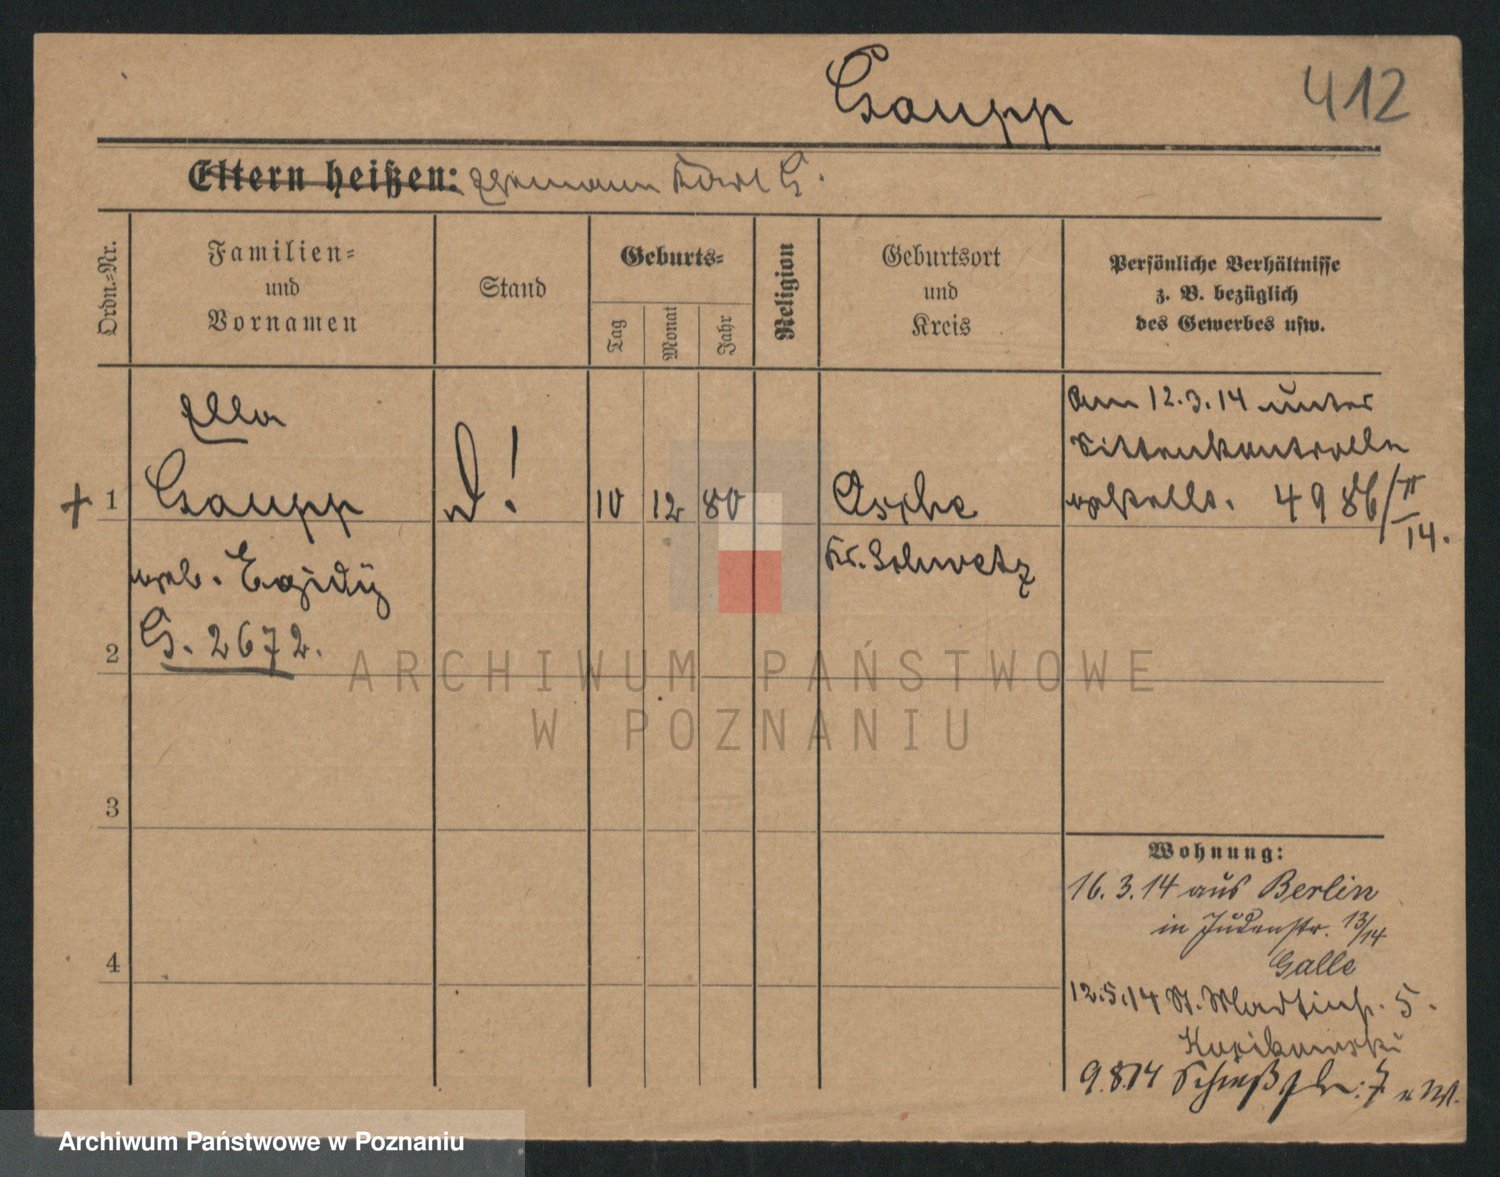 Gaupp
412
Eltern heißen: Ehemann Karl G.
Ordn.-Nr.
Familien-
und
Vornamen
Stand
Geburts-
Tag
Monat
Jahr
Religion
Geburtsort
und
Kreis
Persönliche Verhältnisse
z. B. bezüglich
des Gewerbes usw.
Ella
+ 1 Gaupp
geb. Egidÿ
G. 2672.
10 12 80
Kr. Schwetz
Am 12.3.14 unter
Sittenkontrolle
gestellt. 4986/II
14.
2
3
4
Wohnung:
16. 3. 14 aus Berlin
in Judenstr. 13/14
Galle
12.5.14 St. Martinstr. 5.
9.8.14 Schießstr. 7
ARCHIWUM PAŃSTWOWE
W POZNANIU
Archiwum Państwowe w Poznaniu